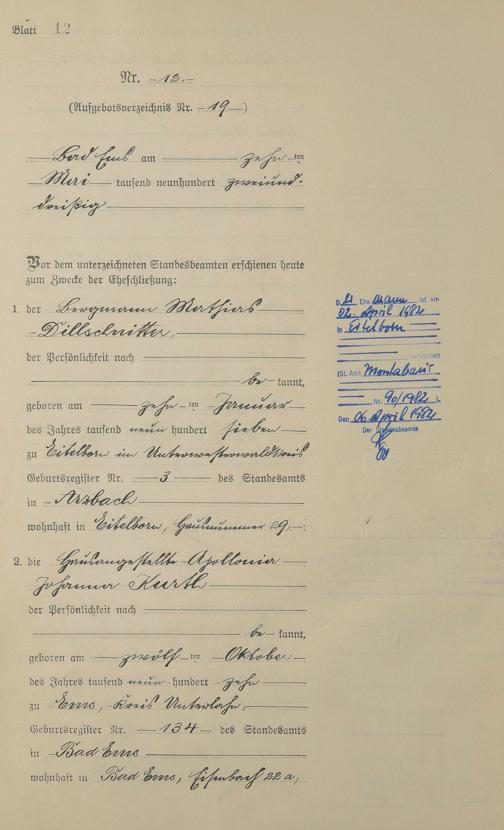 Blatt 12
Nr. 12.
(Aufgebotsverzeichnis Nr. 19)
Bad Ems am zehn ten
Mai tausend neunhundert zweiund-
dreißig
Vor dem unterzeichneten Standesbeamten erschienen heute
zum Zwecke der Eheschließung:
1. der Bergmann Mathias
Dillschnitter,
der Persönlichkeit nach
be kannt,
geboren am zehn ten Januar
des Jahres tausend neun hundert sieben
zu Eitelborn im Unterwesterwaldkreis
Geburtsregister Nr. 3 des Standesamts
in Arzbach
wohnhaft in Eitelborn, Hausnummer 29,
2. die Hausangestellte Apollonia
Johanna Kurth
der Persönlichkeit nach
be kannt,
geboren am zwölf ten Oktober
des Jahres tausend neun hundert zehn
zu Ems, Kreis Unterlahn,
Geburtsregister Nr. 134 des Standesamts
in Bad Ems
wohnhaft in Bad Ems, Eisenbach 22a,
D er Ehemann ist am
02. April 1982
in Eitelborn
verstorben
(St. Amt Montabaur
Nr. 90/1982).
Den 06. April 1982
Der Standesbeamte